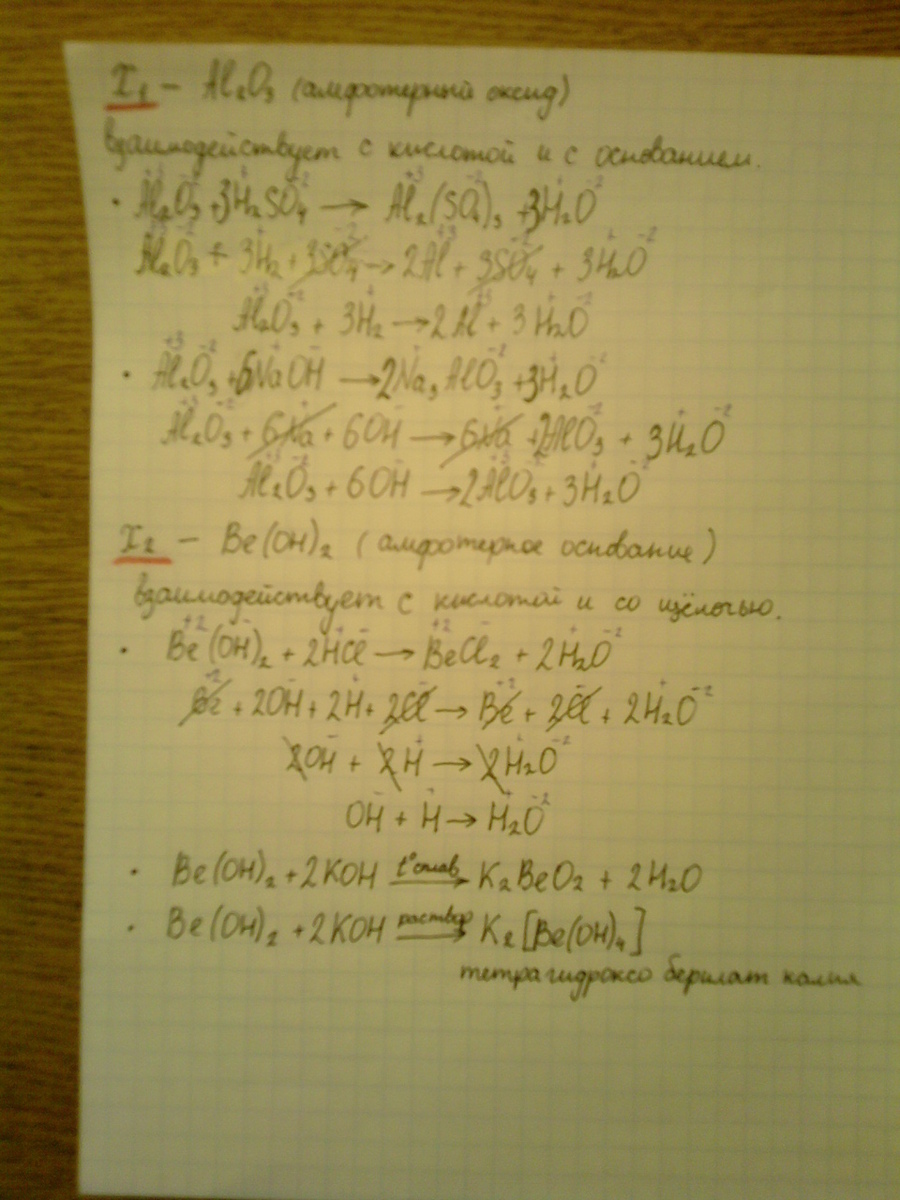 X₁ – Al₂O₃ (амфотерный оксид)
взаимодействует с кислотой и с основанием.
· Al₂⁺³O₃⁻² + 3H₂⁺SO₄⁻² → Al₂⁺³(SO₄)₃⁻² + 3H₂⁺O⁻²
Al₂⁺³O₃⁻² + 3H₂⁺ + 3SO₄⁻² → 2Al⁺³ + 3SO₄⁻² + 3H₂⁺O⁻²
Al₂⁺³O₃⁻² + 3H₂⁺ → 2Al⁺³ + 3H₂⁺O⁻²
· Al₂⁺³O₃⁻² + 6Na⁺OH⁻ → 2Na₃⁺AlO₃⁻² + 3H₂⁺O⁻²
Al₂⁺³O₃⁻² + 6Na⁺ + 6OH⁻ → 6Na⁺ + 2AlO₃⁻² + 3H₂⁺O⁻²
Al₂⁺³O₃⁻² + 6OH⁻ → 2Al⁺³O₃⁻² + 3H₂⁺O⁻²
X₂ – Be(OH)₂ (амфотерное основание)
взаимодействует с кислотой и со щёлочью.
· Be⁺²(OH)₂⁻ + 2H⁺Cl⁻ → Be⁺²Cl₂⁻ + 2H₂⁺O⁻²
Be⁺² + 2OH⁻ + 2H⁺ + 2Cl⁻ → Be⁺² + 2Cl⁻ + 2H₂⁺O⁻²
2OH⁻ + 2H⁺ → 2H₂⁺O⁻²
OH⁻ + H⁺ → H₂⁺O⁻²
· Be(OH)₂ + 2KOH t°сплав → K₂BeO₂ + 2H₂O
· Be(OH)₂ + 2KOH раствор → K₂[Be(OH)₄]
тетрагидроксо берилат калия